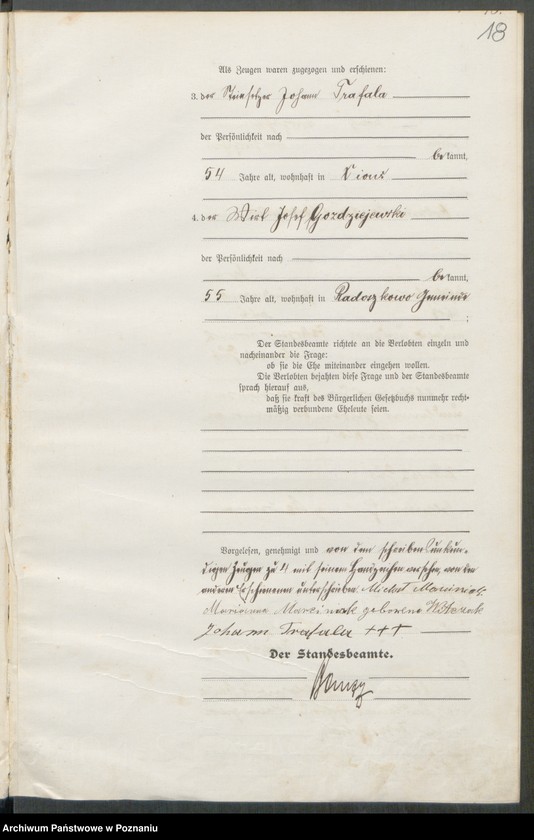 18
Als Zeugen waren zugezogen und erschienen:
3. der Steinsetzer Johann Trafala
der Persönlichkeit nach
bekannt,
54 Jahre alt, wohnhaft in Xions
4. der Wirt Josef Gozdziejewski
der Persönlichkeit nach
bekannt,
55 Jahre alt, wohnhaft in Radoszkowo Gemeinde
;
Der Standesbeamte richtete an die Verlobten einzeln und
nacheinander die Frage:
ob sie die Ehe miteinander eingehen wollen.
Die Verlobten bejahten diese Frage und der Standesbeamte
sprach hierauf aus,
daß sie kraft des Bürgerlichen Gesetzbuchs nunmehr recht-
mäßig verbundene Eheleute seien.
Vorgelesen, genehmigt und von dem schreibensunkun-
digen Zeugen zu 4 mit seinem Handzeichen versehen, von den
anderen Erschienenen unterschrieben. Michał Marciniak
Marianna Marciniak geborene
Johann Trafala +++
Der Standesbeamte.
Archiwum Państwowe w Poznaniu